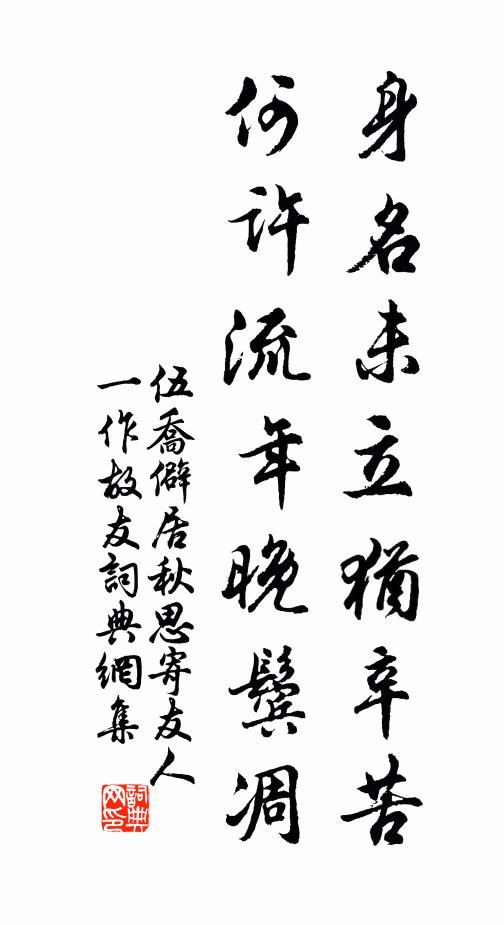 身名未立猶辛苦
何許流年晚鬢凋
伍喬僻居秋思寄友人
一作故友詞典網集
詞典
网印